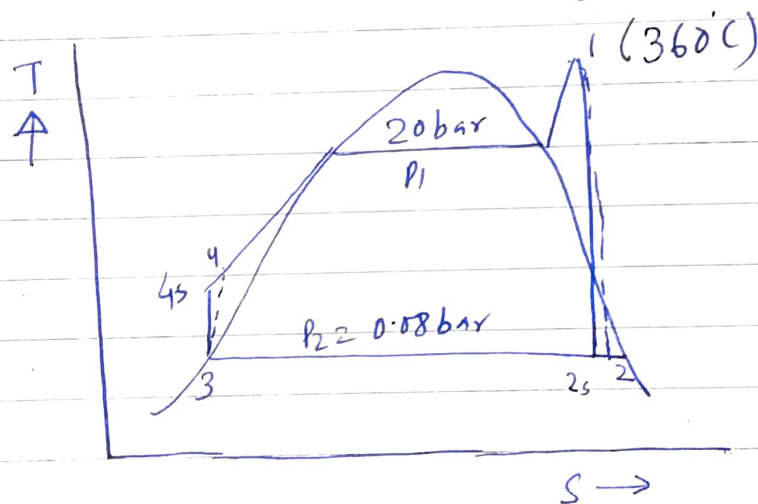 1 (360°C)
T
↑
20 bar
P1
4
4s
P2 = 0.08 bar
3
2s 2
S →